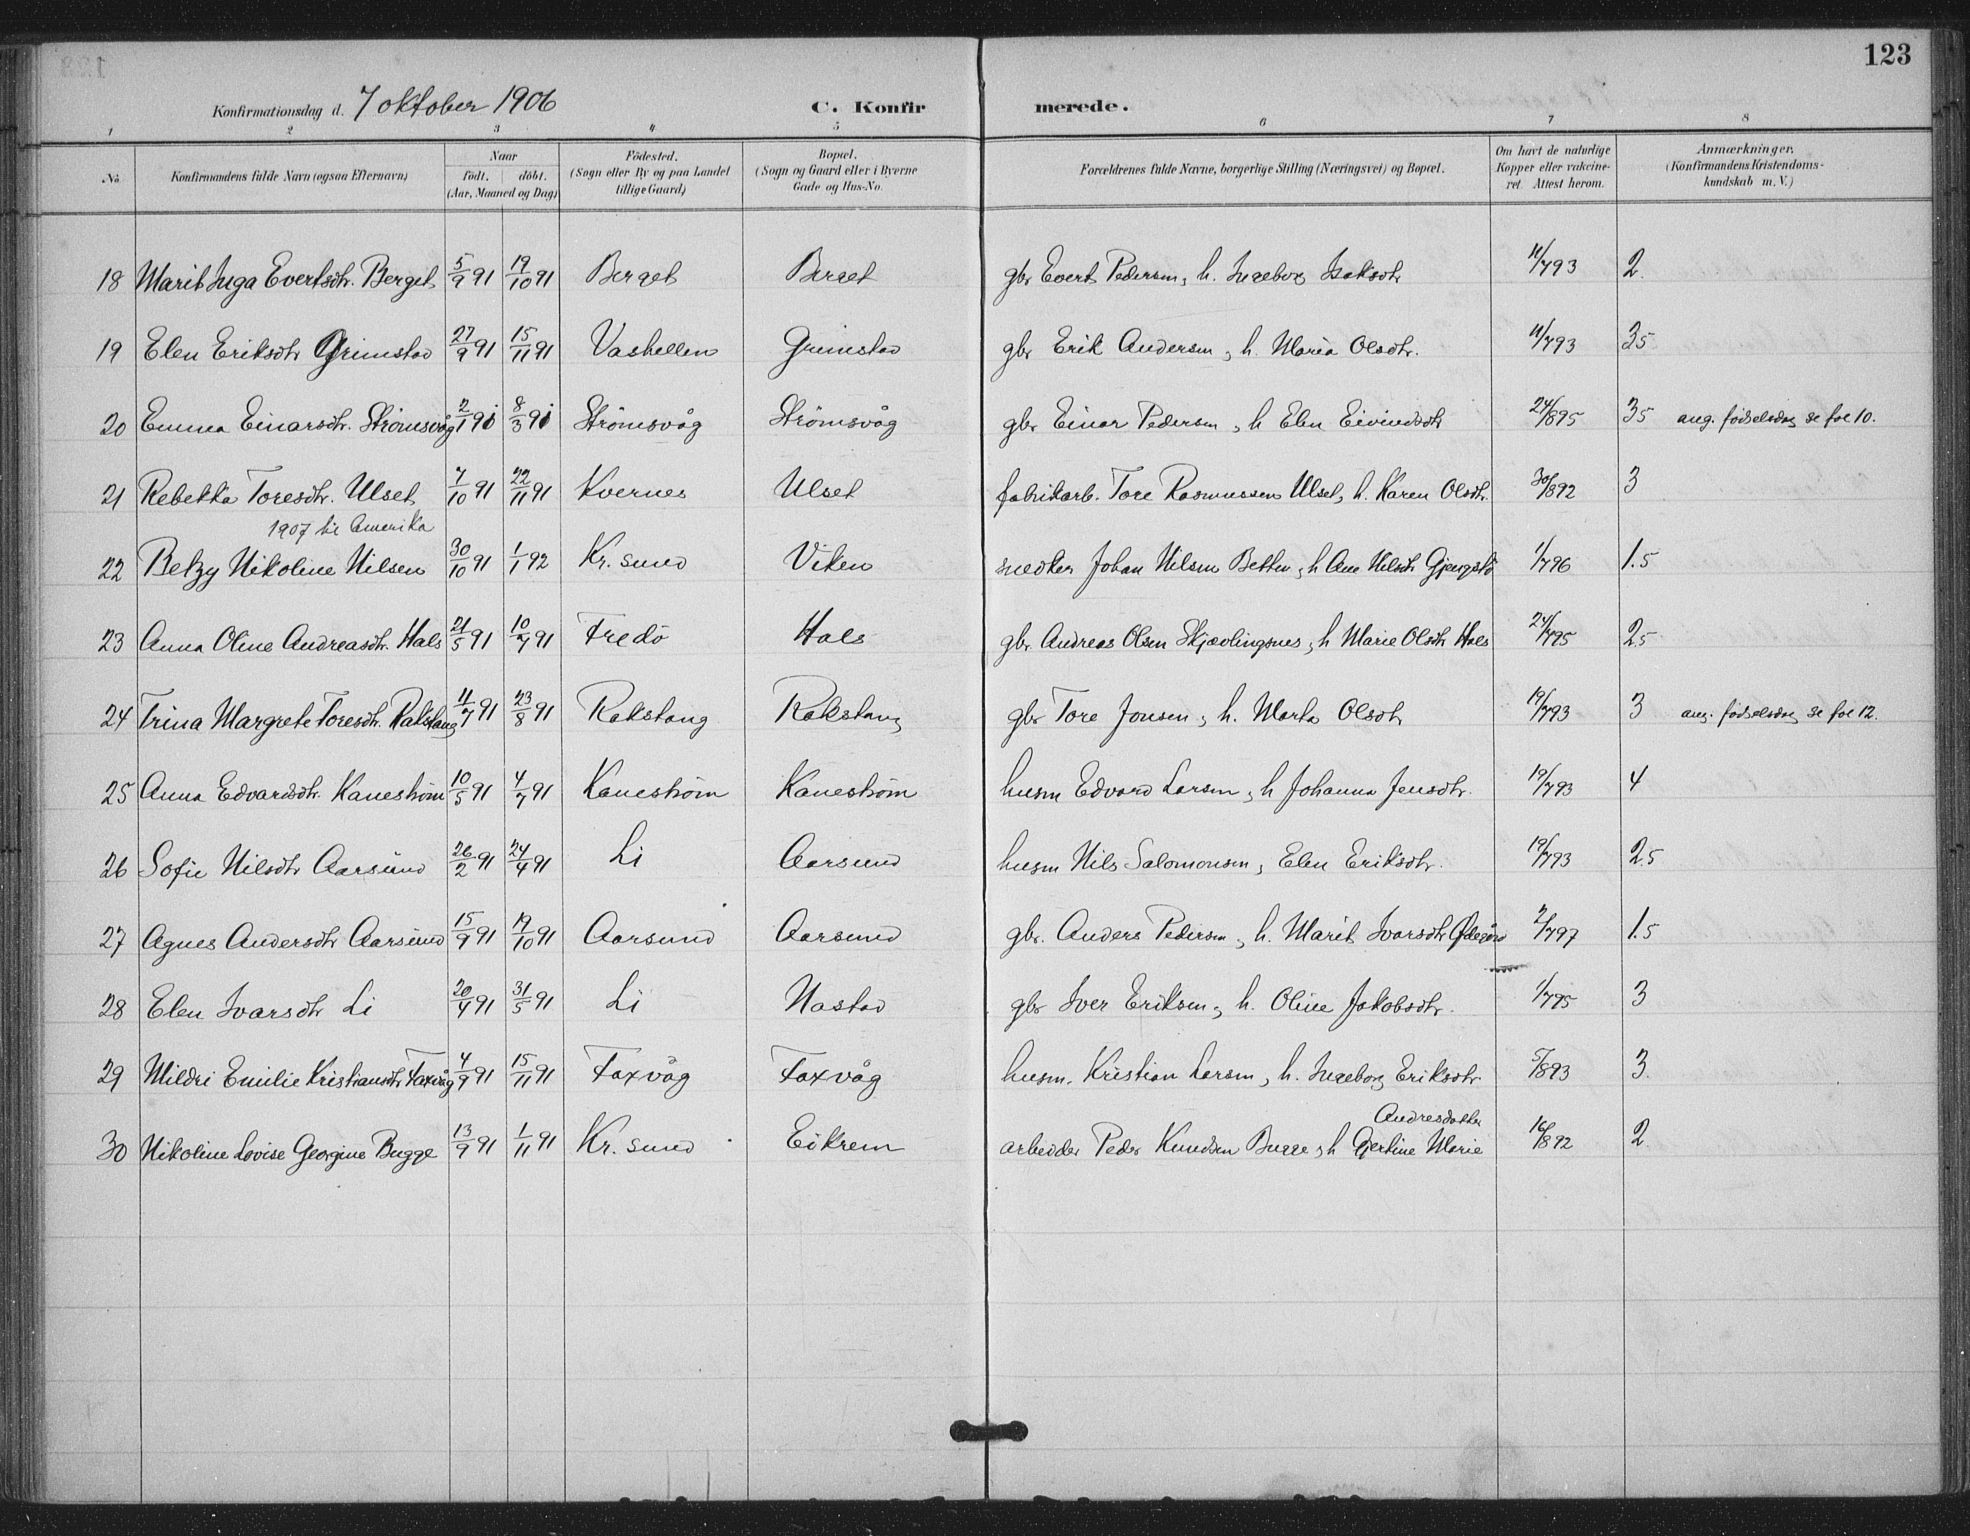 123
Konfirmationsdag d. 7 oktober 1906 C. Konfirmerede.
1 2 3 4 5 6 7 8
No. Konfirmandens fulde Navn (ogsaa Efternavn) Naar født. døbt. (Aar, Maaned og Dag) Fødested. (Sogn eller By og paa Landet tillige Gaard) Bopæl. (Sogn og Gaard eller i Byerne Gade og Hus-No. Forældrenes fulde Navne, borgerlige Stilling (Næringsvei) og Bopæl. Om havt de naturlige Kopper eller vakcineret. Attest herom. Anmærkninger. (Konfirmandens Kristendomskundskab m. V.)
18 Marit Inga Evertsdtr. Berget 5/9 91 19/10 91 Berget Berget gbr Evert Pedersen, h. Ingeborg Isaksdtr 11/7 93 2.
19 Elen Eriksdtr Grimstad 27/9 91 15/11 91 Vashellen Grimstad gbr Erik Andersen, h. Maria Olsdtr. 11/7 93 35
20 Emma Einarsdtr. Strömsvåg 2/1 91 8/3 91 Strömsvåg Strömsvåg gbr Einar Pedersen, h Elen Eivindsdtr 24/8 95 35 ang. födselsdag se fol 10.
21 Rebekka Toresdtr. Ulset 7/10 91 22/11 91 Kvernes Ulset fabrikarb. Tore Rasmussen Ulset, h. Karen Olsdtr. 30/8 92 3
1907 til Amerika
22 Betzy Nikoline Nilsen 30/10 91 1/1 92 Kr. sund Viken snedker Johan Nilsen Betten, h Ane Nilsdtr 1/7 96 1.5
23 Anna Oline Andreasdtr. Hals 21/5 91 10/7 91 Fredö Hals gbr. Andreas Olsen Skjævlingsnes, h Marie Olsdtr Hals 24/7 95 2.5
24 Trina Margrete Toresdtr. Rakstang 11/7 91 23/8 91 Rakstang Rakstang gbr Tore Jonsen, h. Marta Olsdtr 19/7 93 3 ang. födselsdag se fol 12.
25 Anna Edvardsdtr. Kaneström 10/5 91 4/7 91 Kaneström Kaneström husm Edvard Larsen, h Johanna Jensdtr. 19/7 93 4
26 Sofie Nilsdtr Aarsund 26/2 91 24/4 91 Li Aarsund husm Nils Salomonsen, Elen Eriksdtr. 19/7 93 2.5
27 Agnes Andersdtr Aarsund 15/9 91 19/10 91 Aarsund Aarsund gbr. Anders Pedersen, h. Marit Ivarsdtr Ødegård 2/7 97 1.5
28 Elen Ivarsdtr Li 20/4 91 31/5 91 Li Nastad gbr Iver Eriksen, h. Oline Jakobsdtr. 1/7 95 3
29 Mildri Emilie Kristiansdtr Faxvåg 4/9 91 15/11 91 Faxvåg Faxvåg husm. Kristian Larsen, h. Ingeborg Eriksdtr. 5/8 93 3.
Andresdatter
30 Nikoline Lovise Georgine Bugge 13/9 91 1/11 91 Kr. sund Eikrem arbeider Peder Knudsen Bugge, h Gjertine Marie 16/8 92 2.